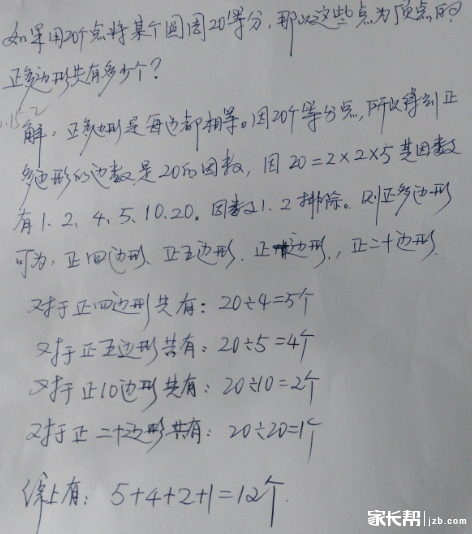 如果用20个点将某个圆周20等分,那以这些点为顶点的
正多边形共有多少个?
解:正多边形是每边都相等。因20个等分点,所以得到正
多边形的边数是20的因数,因20=2×2×5其因数
有1、2、4、5、10、20。因数1、2排除。则正多边形
可为:正四边形、正五边形、正十边形、正二十边形.
对于正四边形共有:20÷4=5个
对于正五边形共有:20÷5=4个
对于正10边形共有:20÷10=2个
对于正二十边形共有:20÷20=1个
综上有:5+4+2+1=12个.
家长帮 jzb.com